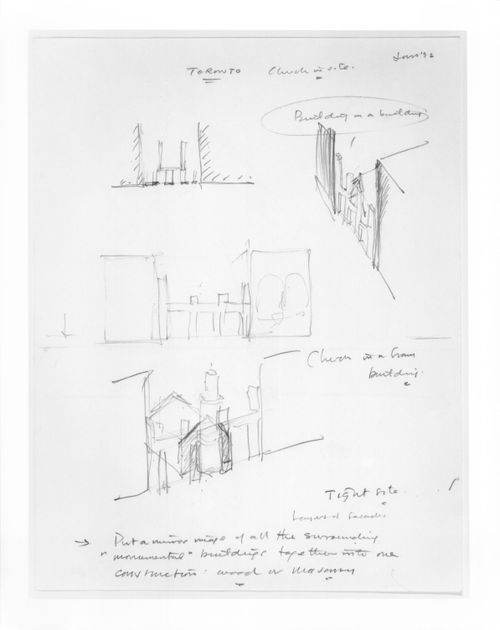 TORONTO Church in site.
Building in a building
Church in a
building.
Tight site.
Layers of facades
Put a mirror image of all the surrounding
"monumental" buildings together into one
construction: wood or masonry